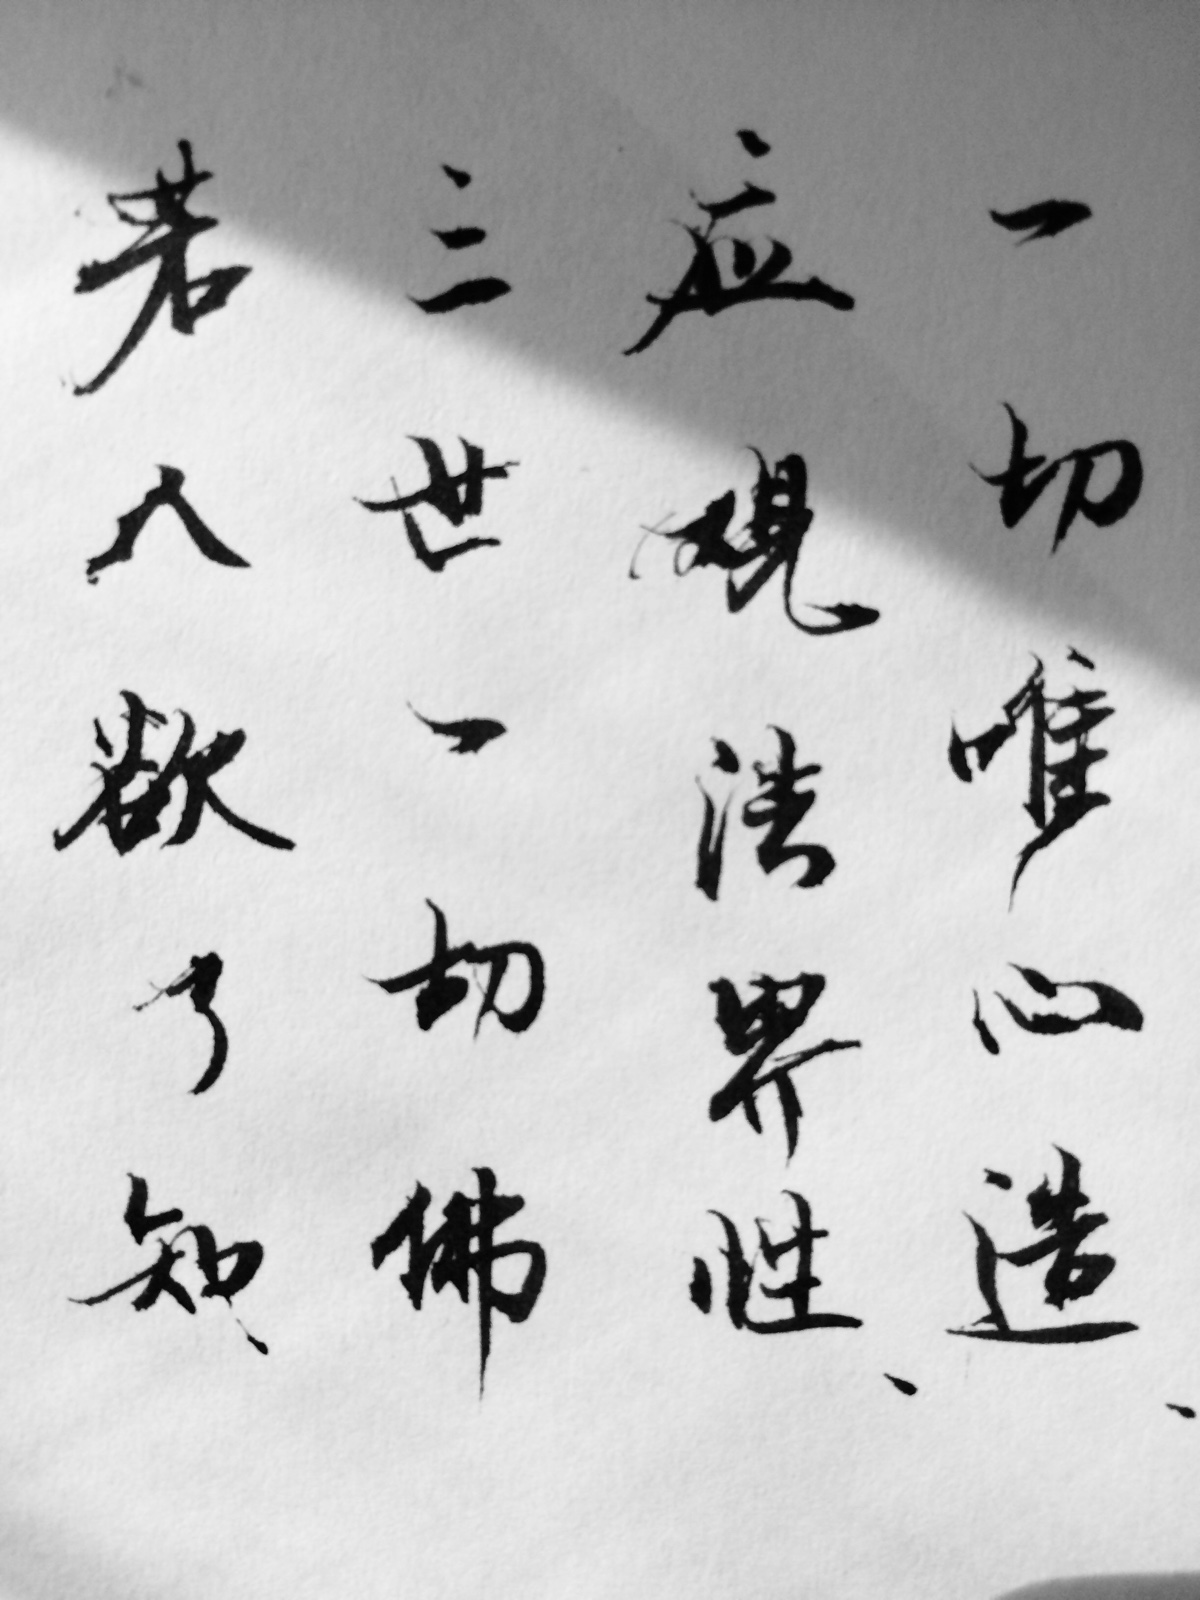 若人欲了知、
三世一切佛
应观法界性、
一切唯心造、